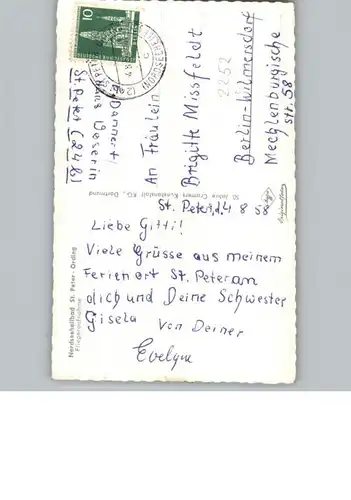 St. Peter, d. 4 8 58
Liebe Gitti!
Viele Grüsse aus meinem
Ferienort St. Peter an
dich und Deine Schwester
Gisela von Deiner
Evelyne
An Fräulein
Brigitte Missfeldt
2252
Berlin-Wilmersdorf
Mecklenburgische
Str. 58
E. Dannert
Haus Weserin
St. Peter (24b)
Nordseeheilbad St. Peter-Ording
Fliegeraufnahme
50 Jahre Cramers Kunstanstalt KG., Dortmund
10